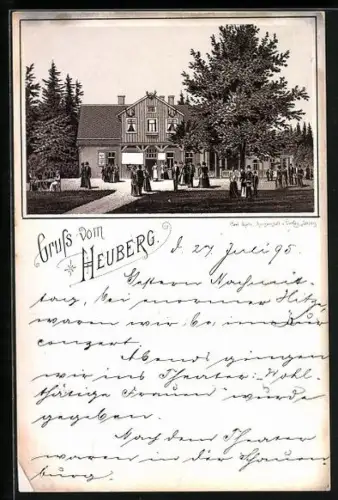 Gruß vom
HEUBERG.
d. 27. Juli 95.
Gestern Nachmit-
tag, bei enormer Hitze,
waren wir
concert.
Abends gingen
wir ins Theater: "Wohl-
thätige Frauen" wurde
gegeben.
Nach dem Theater
waren in der Schauen-
burg.